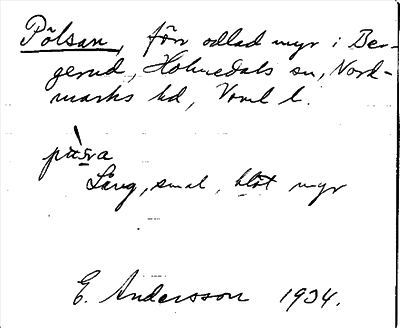 Pölsan, förr odlad myr i Ber-
gerud, Holmedals sn, Nord-
marks hd, Vrml l.
Lång, smal, blöt myr
E. Andersson 1934.